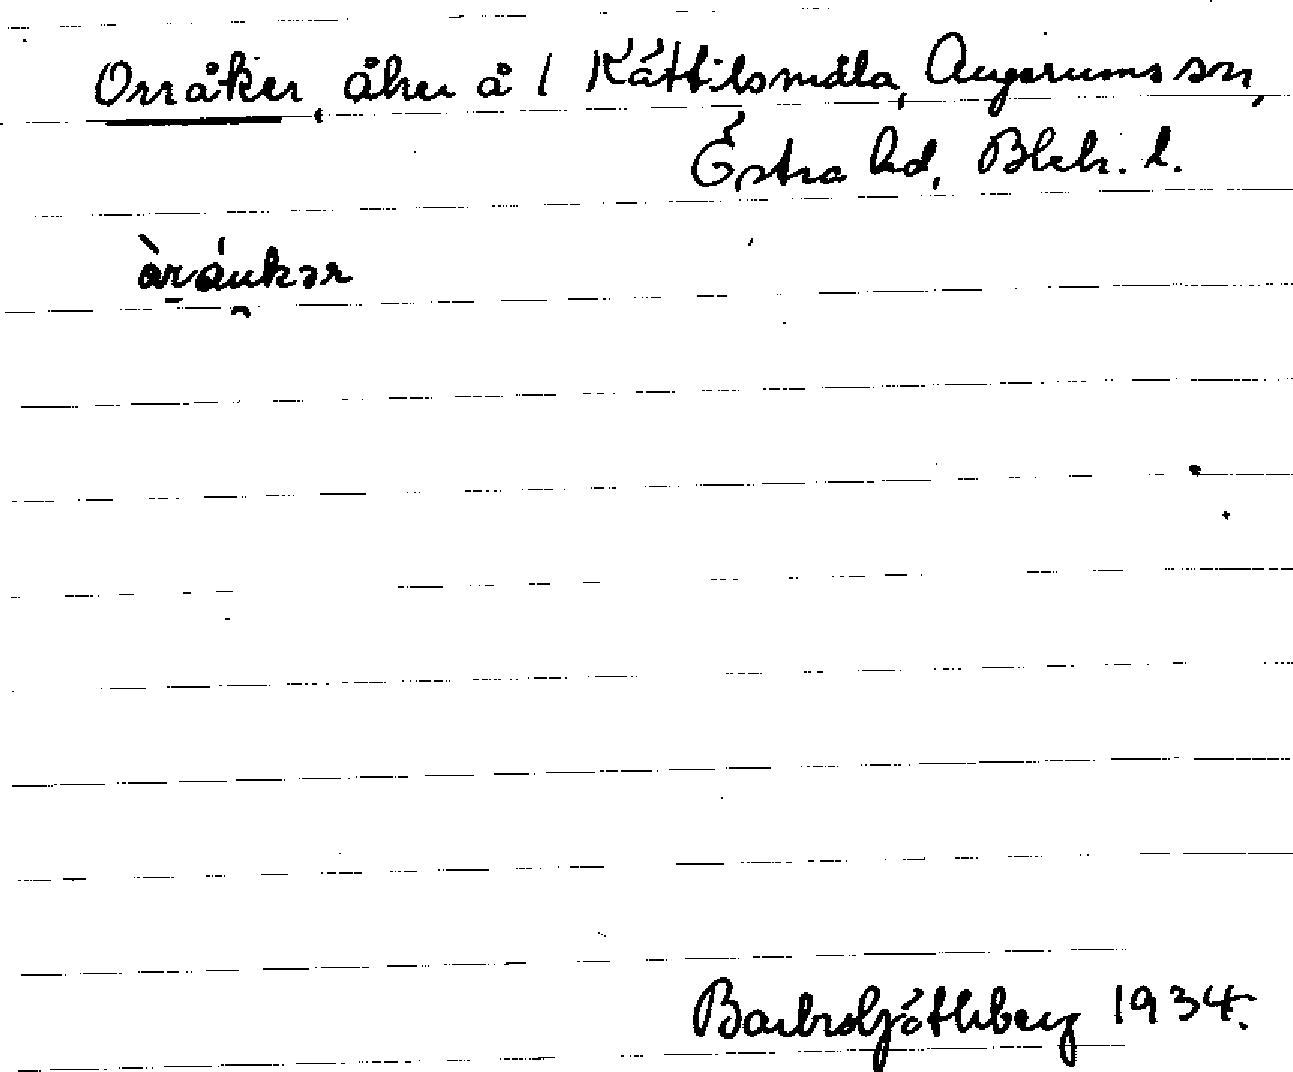 Orråker, åker å 1 Kättilsmåla, Augerums sn,
Östra hd, Blek. l.
Barbro Göthberg 1934.